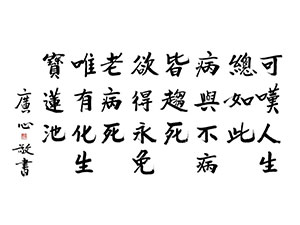 可嘆人生
總如此
病與不病
皆趨死
欲得永免
老病死
唯有化生
寶蓮池
廣心敬書